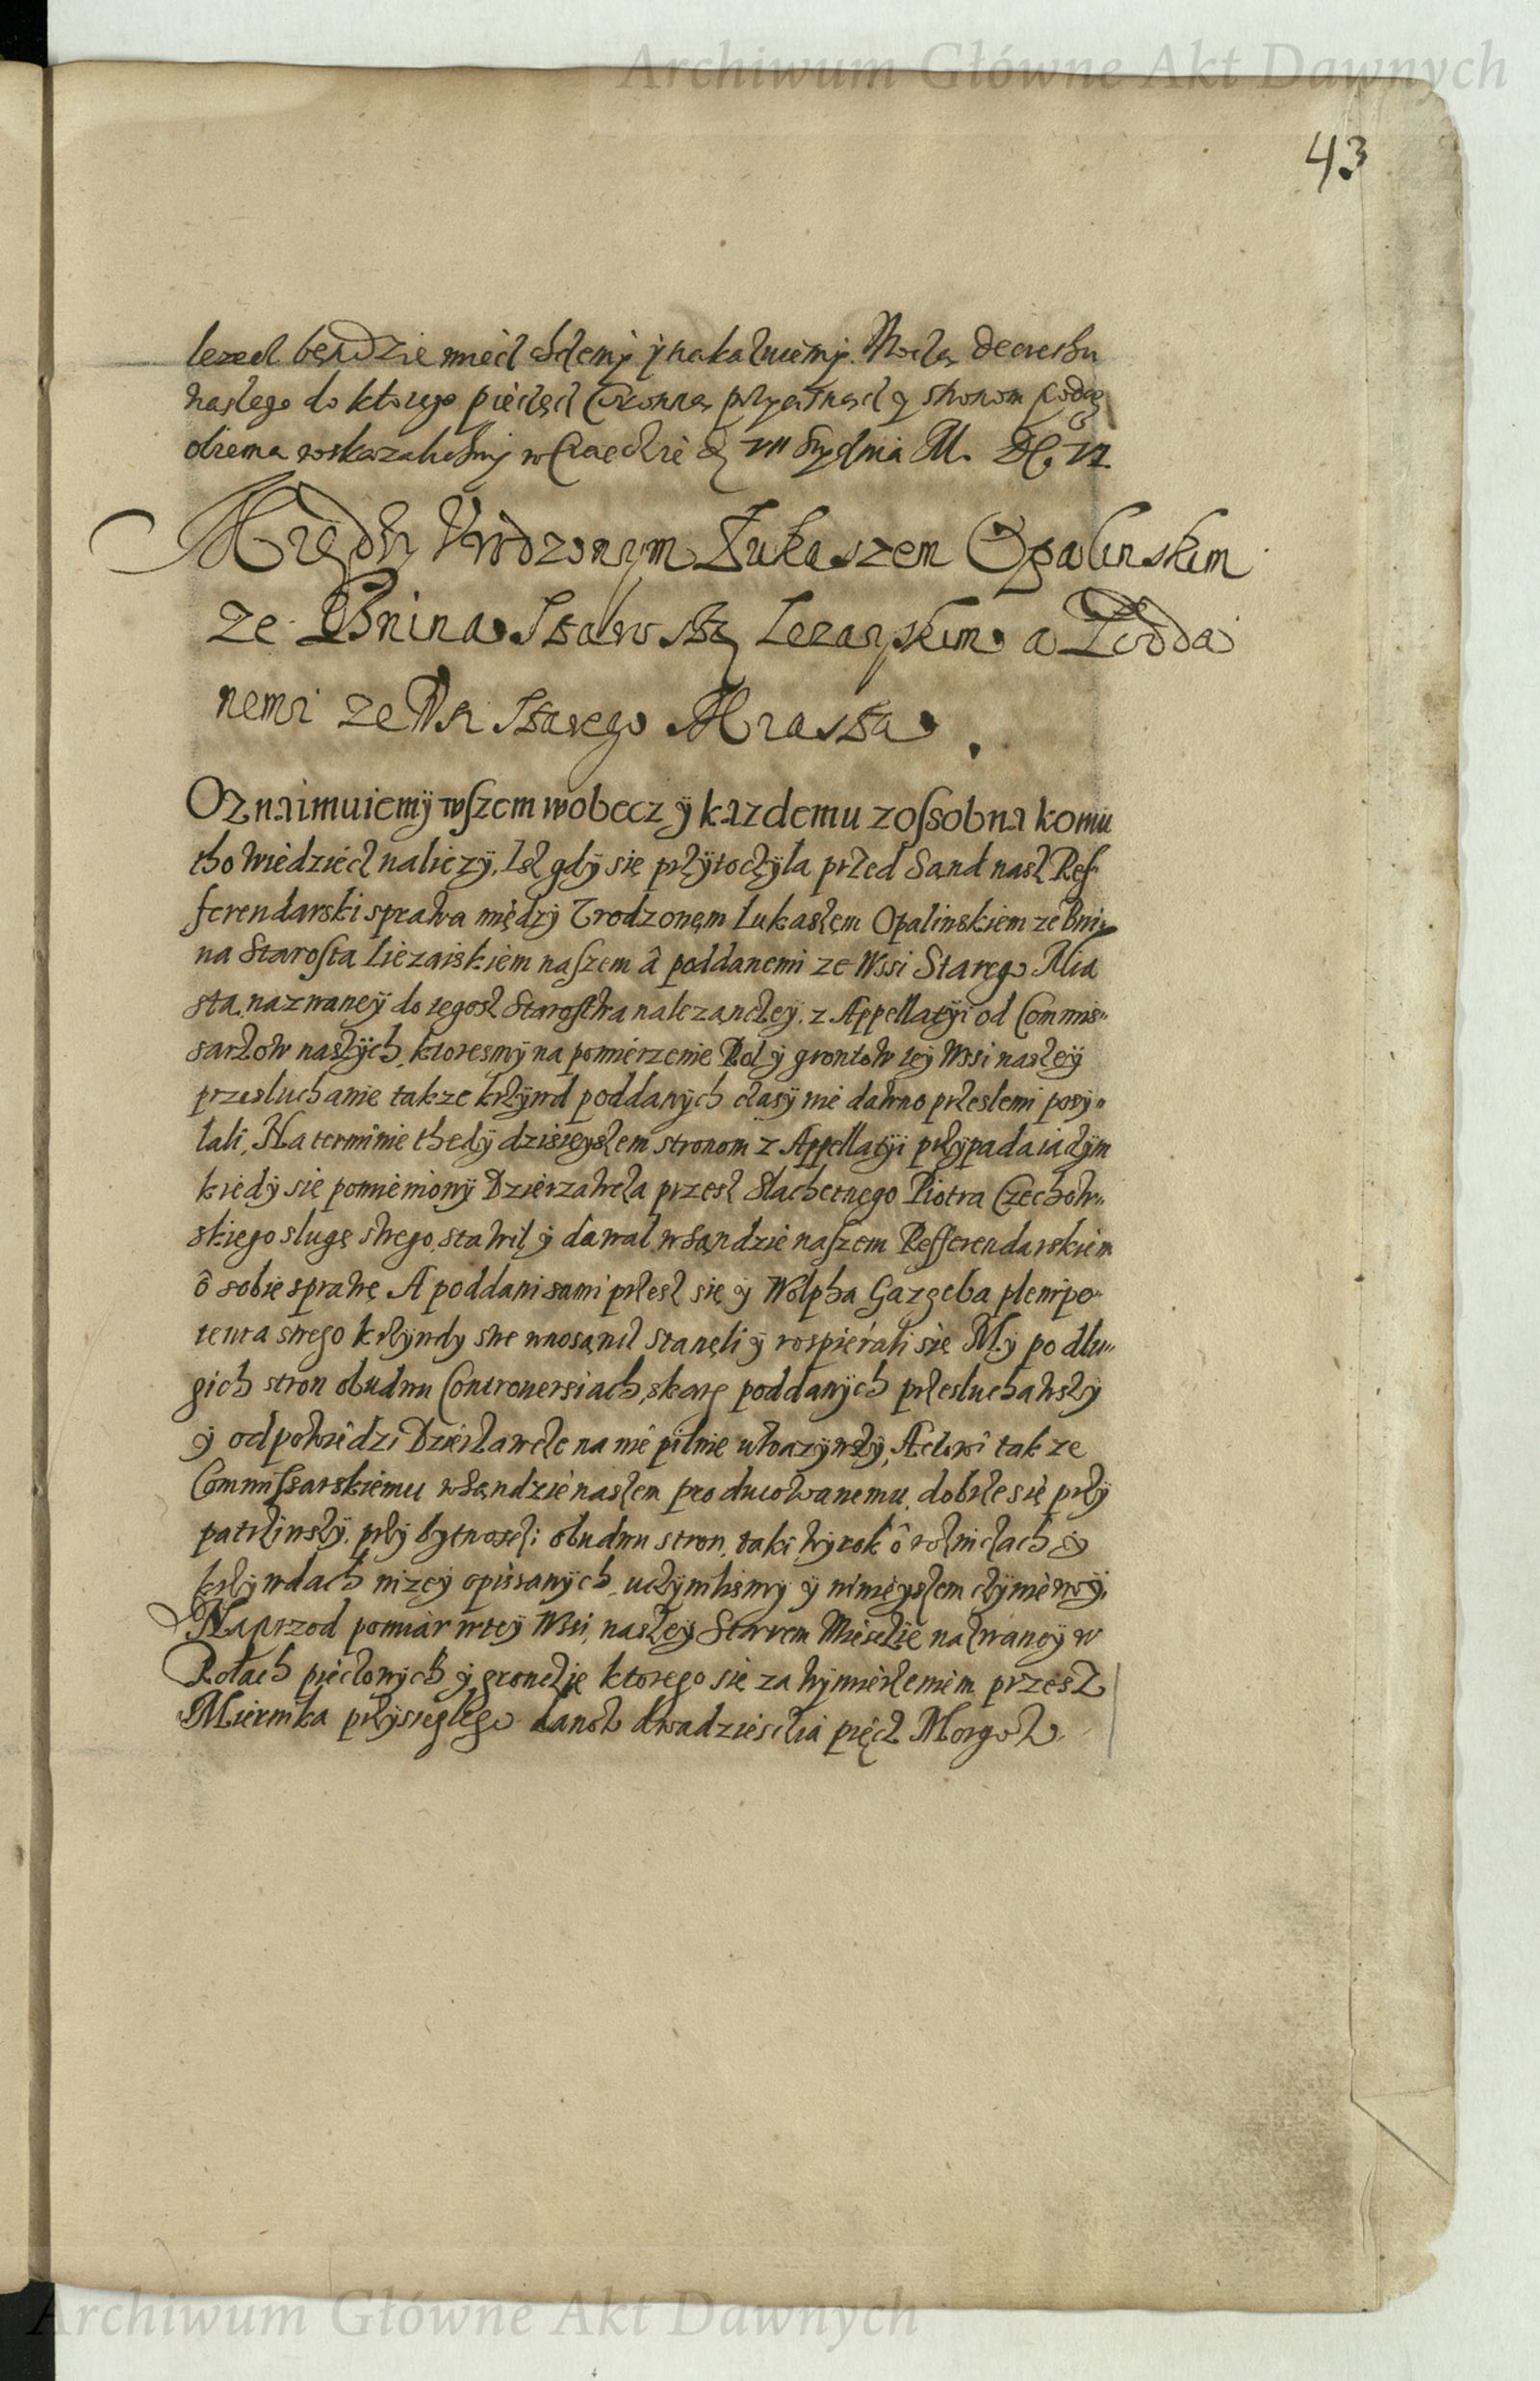 Archiwum Główne Akt Dawnych
43
bendzie miecz chczemy y nakazuiemy. Moczą decrethu
naszego do ktorego pieczęcz Coronną przyczisnącz y stronom
obiema wskazalismy w
Między Vrodzonym Łukaszem Opalinskim
ze Bnina Starostą Lezayskim a Podda
nemi ze Wsi Starego Miasta.
Oznaimuiemÿ wszem wobecz ÿ kazdemu zossobna komu
tho wiedziecz naliezÿ, Isz gdÿ się przÿtoczÿla przed Sand nasz Ref
ferendarski sprawa między Vrodzonęm Lukaszęm Opalinskiem ze Bni
na Starosta Liezaiskiem naszem â poddanemi ze Wssi Starego Mia
sta nazwaneÿ do tegosz Starostwa nalezanczeÿ, z Appellatÿi od Commis„
sarzow naszÿch, ktoresmÿ na pomierzenie Rol ÿ grontow teÿ Wssi naszeÿ
przesluchanie takze krzÿwd poddanÿch czasÿ nie dawno przeslemi posÿ„
lali, Na terminie thedÿ dzisieÿszem stronom z Appellatÿi przÿpadaiaczÿm
kiedÿ sie pomienionÿ Dzierzawcza przesz Slachetnego Piotra Czechow„
skiego slugę swego stawil ÿ dawal w Sandzie naszem Refferendarskiem
ô sobie sprawę A poddani sami przesz się ÿ Wolpha Gazgeba plenipo„
tenta swego krzÿwdy swe wnosząncz stanęli ÿ rospierali się Mÿ po dlu„
gich stron obudwu Controuersiach, skarg poddanÿch przesluchawszÿ
ÿ odpowiedzi Dzierzawcze na nie pilnie uwazÿwszÿ, Actowi takze
Commissarskiemu w Sandzie naszem producowanemu, dobrze się przÿ
patrziwszÿ, przÿ bÿtnosczi obudwu stron, taki wÿrok ô roznicach ÿ
krzÿwdach nizeÿ opissanÿch, uczÿnilismÿ ÿ ninieÿszem czÿniemÿ.
Naprzod pomiar w teÿ Wssi, naszeÿ Starem Miesczie nazwaneÿ w
Rolach ÿ gronczie ktorego się za wÿmierzeniem przesz
Miernika przÿsieglego lanow dwadziesczia pięcz Morgow
Archiwum Główne Akt Dawnych